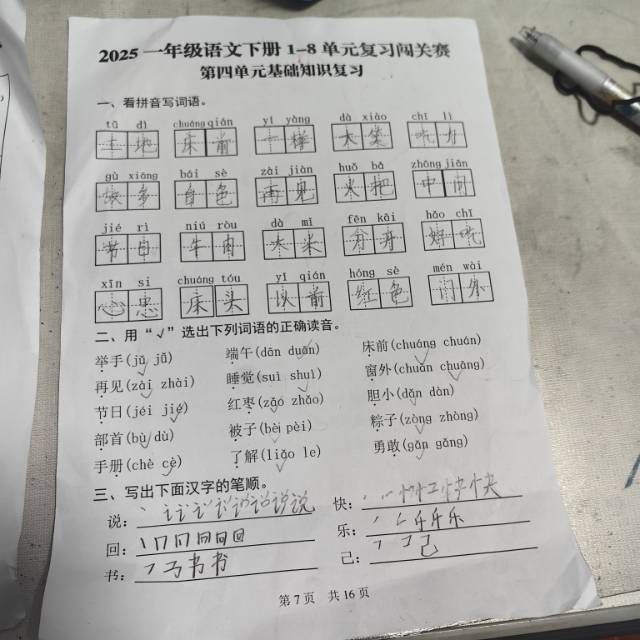 2025 一年级语文下册 1-8 单元复习闯关赛
第四单元基础知识复习
一、看拼音写词语。
tǔ dì chuáng qián yí yàng dà xiào chī lì
土地 床前 一样 大笑 吃力
gù xiāng bái sè zài jiàn huǒ bǎ zhōng jiān
白色 再见 火把 中间
jié rì niú ròu dà mǐ fēn kāi hǎo chī
节日 牛肉 大米 分开 好吃
xīn si chuáng tóu yǐ qián hóng sè mén wài
心思 床头 以前 红色 门外
二、用“√”选出下列词语的正确读音。
举手(jǔ jǚ) 端午(dān duān) 床前(chuáng chuán)
再见(zài zhài) 睡觉(suì shuì) 窗外(chuān chuāng)
节日(jéi jié) 红枣(zǎo zhǎo) 胆小(dǎn dàn)
部首(bù dù) 被子(bèi pèi) 粽子(zòng zhòng)
手册(chè cè) 了解(liǎo le) 勇敢(gǎn gǎng)
三、写出下面汉字的笔顺。
说: 说 快: 快
回: 丨 冂 回 乐: 乐
书: 书 己: 己
第 7 页 共 16 页